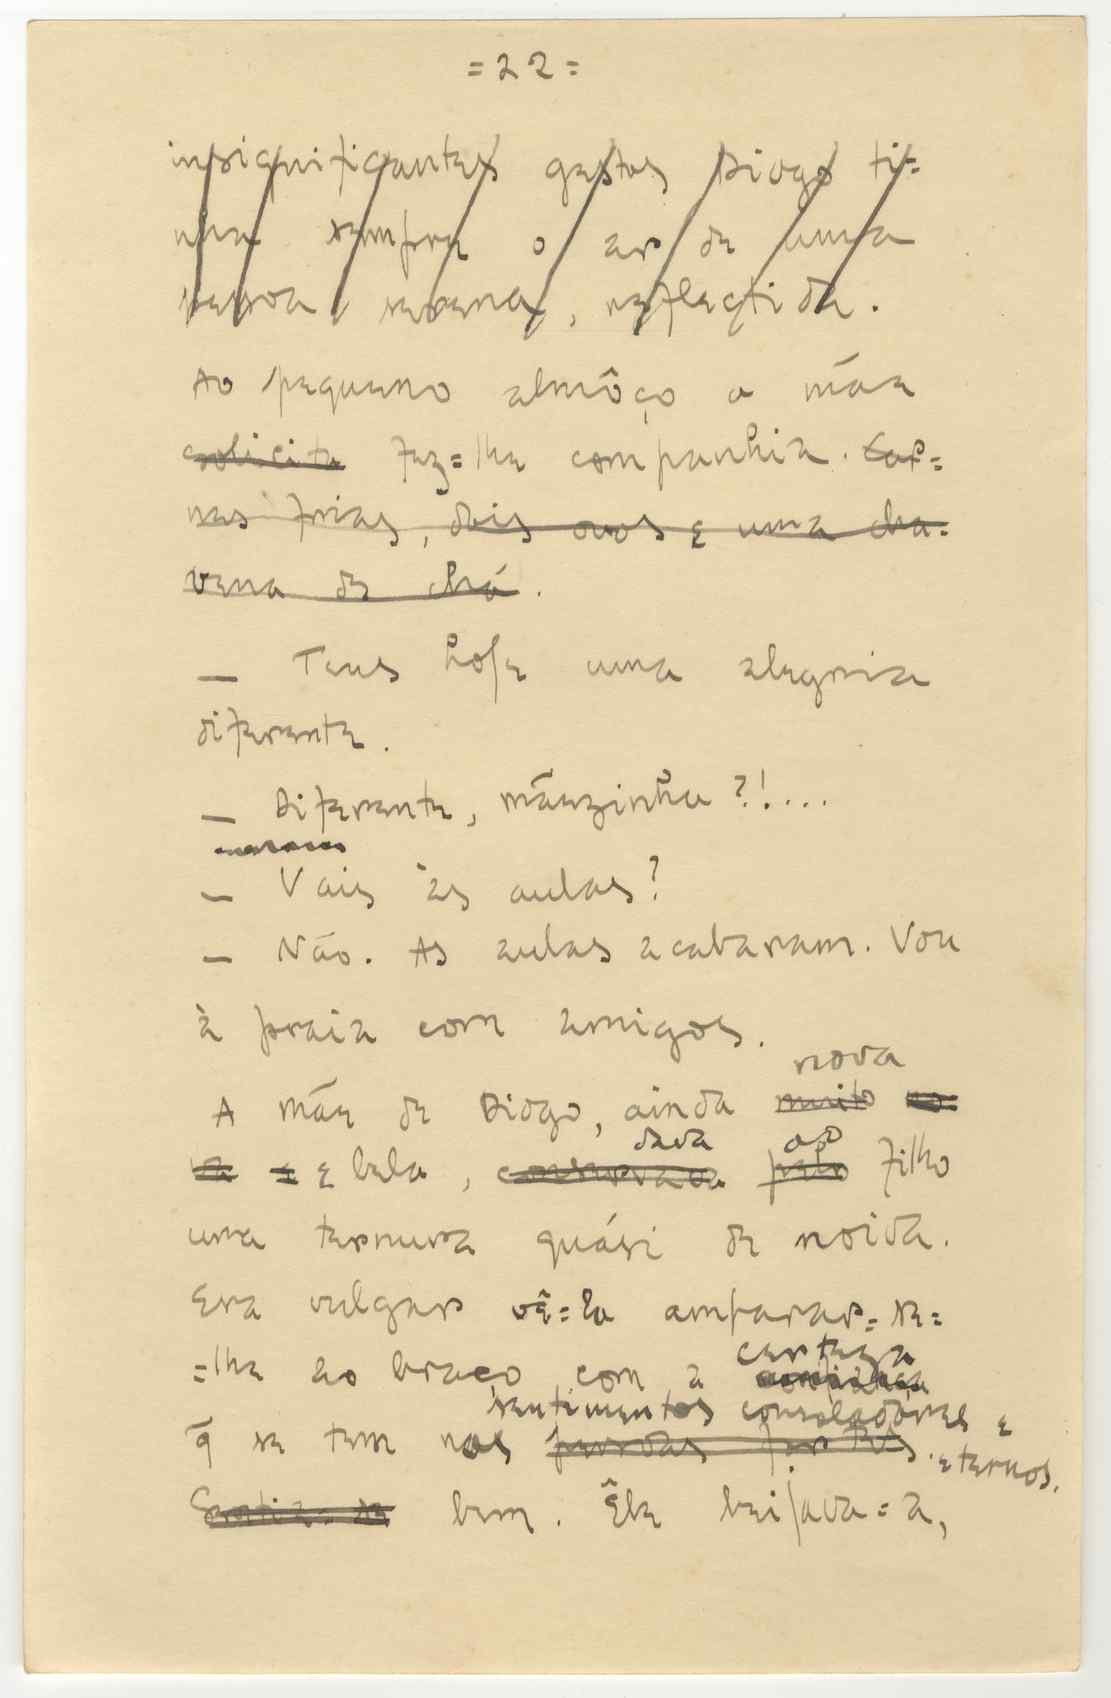 =22=
insignificantes gestos Diogo ti=
nha sempre o ar de uma
pessoa serena, reflectida.
Ao pequeno almôço a mãe
solicita faz=lhe companhia. Car=
nes frias, dois ovos e uma cha=
vena de chá.
— Tens hoje uma alegria
diferente.
— Diferente, mãezinha?!....
— Vais às aulas?
— Não. As aulas acabaram. Vou
à praia com amigos.
nova
A mãe de Diogo, ainda muito no=
va e e bela, conservava pelo filho
dava ao
uma ternura quási de noiva.
Era vulgar vê=la amparar=se=
=lhe ao braço com a confiança
certeza
sentimentos consoladores e
q̃ se tem nos fortes. eternos.
Sentia=se bem. Êle beijava=a,